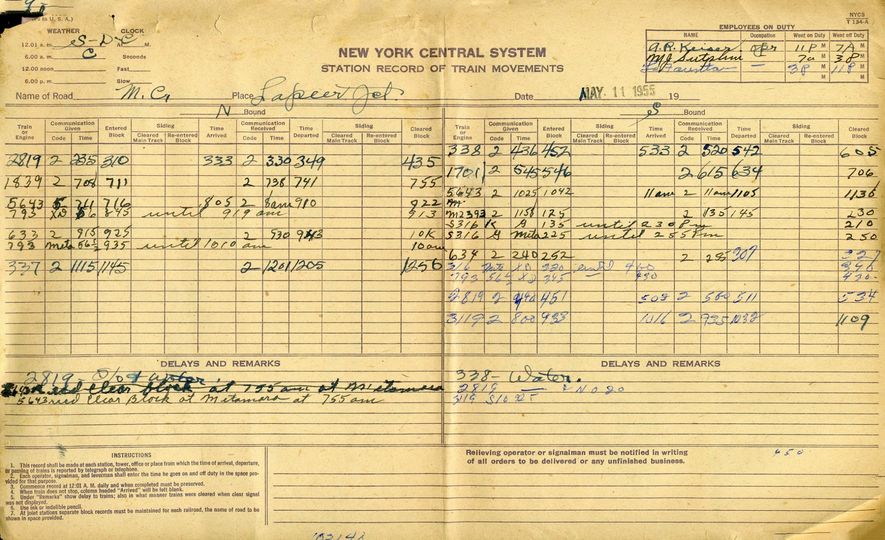 NYCS
T 134-A
WEATHER CLOCK
12.01 a. m. S-D-C At M.
6.00 a. m. C Seconds
12.00 noon Fast
6.00 p. m. Slow
NEW YORK CENTRAL SYSTEM
STATION RECORD OF TRAIN MOVEMENTS
EMPLOYEES ON DUTY
NAME Occupation Went on Duty Went off Duty
A.R. Keiser Opr 11P M 7A M
M.J. Sutphin 7a M 3P M
3P M 11P M
M M
Name of Road M.C. Place Lapeer Jct. Date MAY 11 1955 19
N Bound S Bound
Train or Engine Communication Given Code Time Entered Block Siding Cleared Main Track Re-entered Block Time Arrived Communication Received Code Time Time Departed Siding Cleared Main Track Re-entered Block Cleared Block
2819 2 235 310 333 2 330 349 435
1839 2 708 711 2 738 741 755
5643 5 711 716 805 2 8am 910 922
793 845 until 919 am 913
633 2 915 925 2 930 943 10K
793 Meta 56½ 935 until 1010 am 10am
337 2 1115 1145 2 1201 1205 1256
Train or Engine Communication Given Code Time Entered Block Siding Cleared Main Track Re-entered Block Time Arrived Communication Received Code Time Time Departed Siding Cleared Main Track Re-entered Block Cleared Block
338 2 436 452 533 2 520 542 605
1701 2 545 546 2 615 634 706
5643 2 1025 1042 11am 2 11am 1105 1130
M2393 2 1158 125 2 135 145 230
S316 K A 135 until 230 Pm 210
S316 Meta 225 until 255 Pm 250
634 2 240 252 2 255 307 327
316
793 56½ 345
2819 2 451 508 2 511 534
3119 2 800 933 1016 2 935 1038 1109
DELAYS AND REMARKS
2819 - Water
5643 red Clear Block at Metamora at 755 am
DELAYS AND REMARKS
338 - Water.
2819
INSTRUCTIONS
1. This record shall be made at each station, tower, office or place from which the time of arrival, departure, or passing of trains is reported by telegraph or telephone.
2. Each operator, signalman, and leverman shall enter the time he goes on and off duty in the space provided for that purpose.
3. Commence record at 12:01 A. M. daily and when completed must be preserved.
4. When train does not stop, column headed "Arrived" will be left blank.
5. Under "Remarks" show delay to trains; also in what manner trains were cleared when clear signal was not displayed.
6. Use ink or indelible pencil.
7. At joint stations separate block records must be maintained for each railroad, the name of road to be shown in space provided.
Relieving operator or signalman must be notified in writing
of all orders to be delivered or any unfinished business.
450